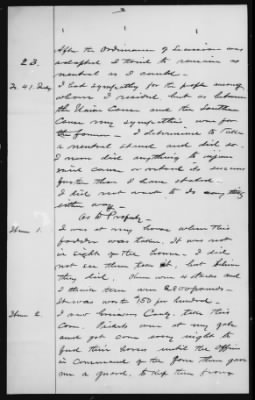 3
After the Ordinance of Secession was
23. adopted I tried to remain as
neutral as I could.
To 41. I had sympathy for the people among
whom I resided, but as between
the Union Cause and the Southern
Cause my sympathies was for
the former — I determined to take
a neutral stand and did so.
I never did anything to injure
said cause or retard its success
further than I have stated.
I did not want to do any thing
either way —
As to Property.
Item 1. I was at my house when this
fodder was taken. It was not
in sight of the house. I did
not see them take it, but
they did. There was 4 stacks and
I think there was 2000 pounds —
It was worth 75¢ per hundred.
Item 2. I saw Cavalry take this
Corn. Pickets were at my gate
and got corn every night to
feed their horses until the officer
in command of the force there gave
me a guard to keep them from